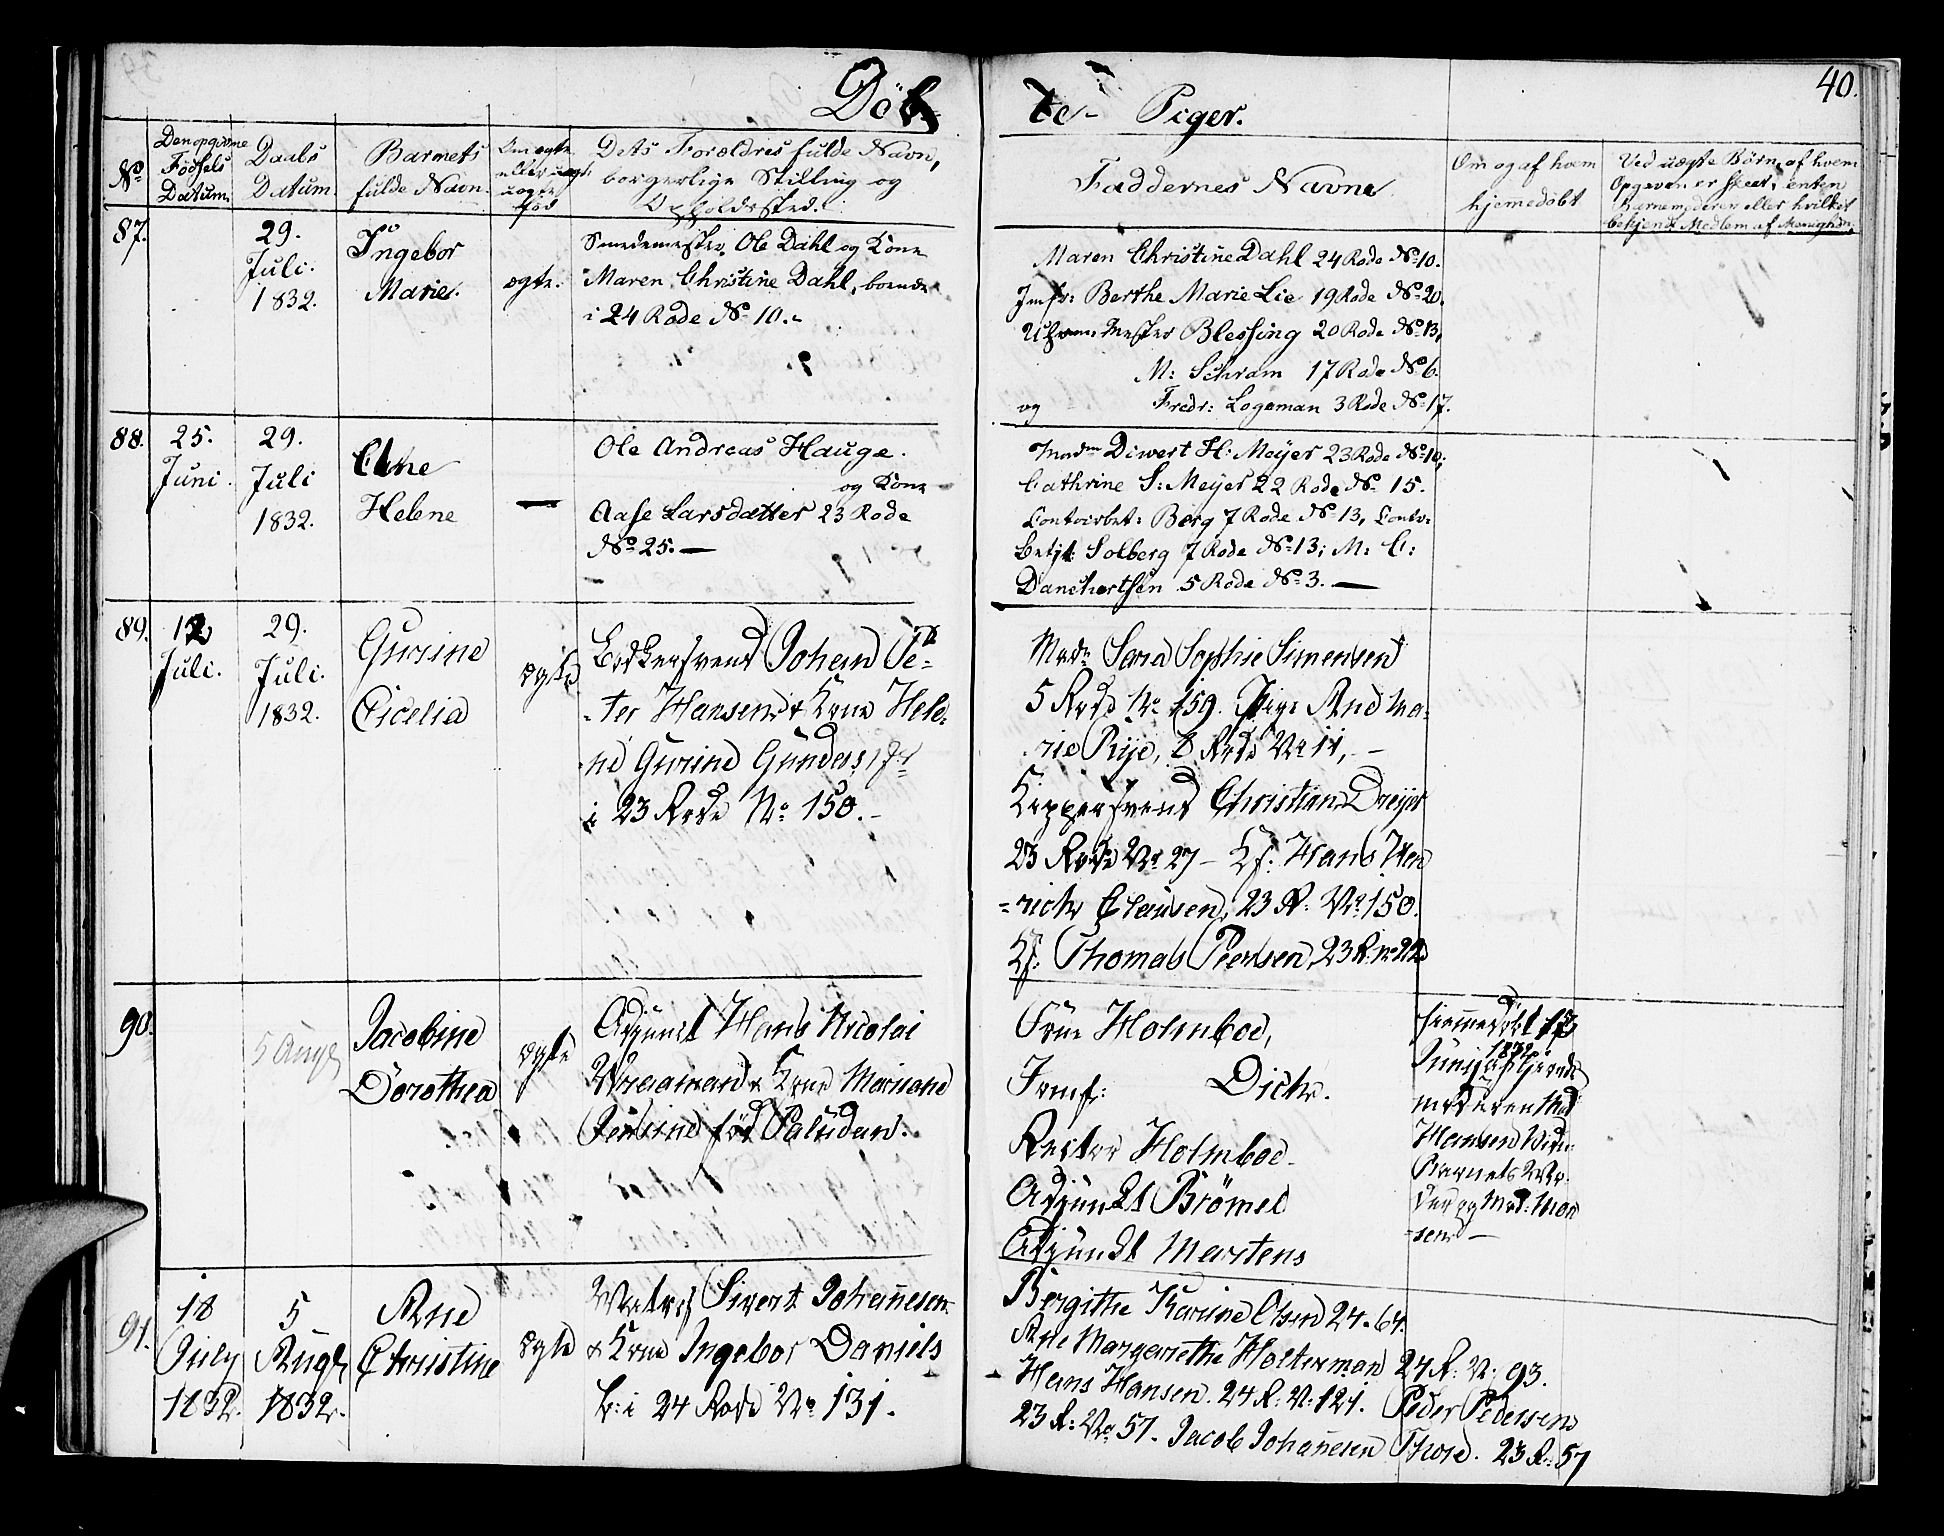 Döb te Piger.
40.
No
Den opgivne Fødsels Datum.
Daabs Datum
Barnets fulde Navn.
Om ægte eller uægte fød
Dets Forældres fulde Navn, borgerlige Stilling og Opholdssted.
Faddernes Navne
Om og af hvem hjemedøbt
Ved uægte Börn, af hvem Opgaven er skeet, enten Barnemoderen eller hvilket bekjendt Medlem af Menighdn.
87.
29.
Juli.
1832.
Ingebor
Marie.
ægte.
Smedemester Ole Dahl og Kone
Maren Christine Dahl, boende
i 24 Rode No 10.
Maren Christine Dahl 24 Rode No 10.
Jmfr: Berthe Marie Lie 19 Rode No 20.
Uhrmester Blessing 20 Rode No 13,
M: Schram 17 Rode No 6.
og Fredr: Logeman 3 Rode No 17.
88.
25.
Juni.
29.
Juli
1832.
Helene
—
Ole Andreas Hauge.
og Kone
Aase Larsdatter 23 Rode
No 25. —
Madm Diwert H: Meyer 23 Rode No 10;
Cathrine S: Meyer 22 Rode No 15.
Contoirbet: Berg 7 Rode No 13, Contr:
Betjt: Solberg 7 Rode No 13; M: C:
Danchertsen 5 Rode No 3. —
89.
12
Juli.
29.
Juli.
1832.
Gurine
Cicelia
ægte
Bødkersvend Johan Pe-
-ter Hansen & Kone Hele-
-ne Gurine Gunders
i 23 Rode No 150.-
Mad. Sara Sophie Simensen
5 Rode No 159. Pige Ane Ma-
rie Rije, 8 Rode No 11,-
Kippersvend Christian Dreyer
23 Rode No 27 - Kf: Hans Hen
-rich Clausen, 23 R. No 150.
Kf: Thomas Peersen, 23 R. No 22
90.
5 Augt
Jacobine
Dorothea
ægte
Adjunct Hans Nicolai
Wraamand & Kone Mariane
Jensine fød Paludan.
Frue Holmboe,
Jomfr: Dick.
Rector Holmboe
Adjunkt Brömel
Adjunkt Martens
hiemmedøbt 17
Junij 1832 af Hjorde
moderen Mad
Hansen
Barnets
og Mad: Han
sen —
91.
18
July
1832.
5
Augt
1832.
Ane
Christine
ægte
Matros Sivert Johannesen
& Kone Ingebor Daniels
b: i 24 Rode No 131.
Bergithe Karine Olsen 24. 64.
Ane Margarethe Holterman 24 R: No: 93.
Hans Hansen. 24 R: No: 121. Peder Pedersen
23 R: No 57. Jacob Johannesen Those. 23 R: 57